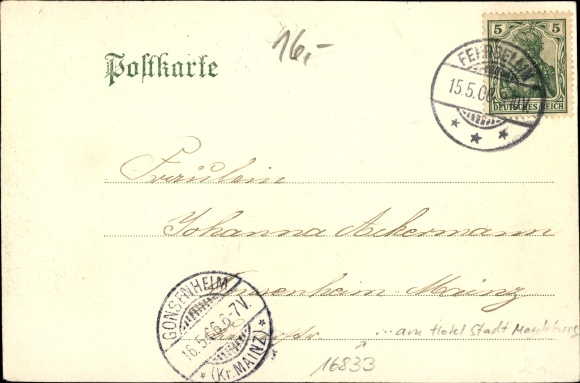 16,-
Postkarte
5 5
DEUTSCHES REICH
FEHRBELLIN
15.5.06. 6-7N.
Fräulein
Johanna Ackermann
Gonsenheim-Mainz
GONSENHEIM
16.5.06.6-7V.
* (Kr.MAINZ) *
...am Hotel Stadt Magdeburg
16833